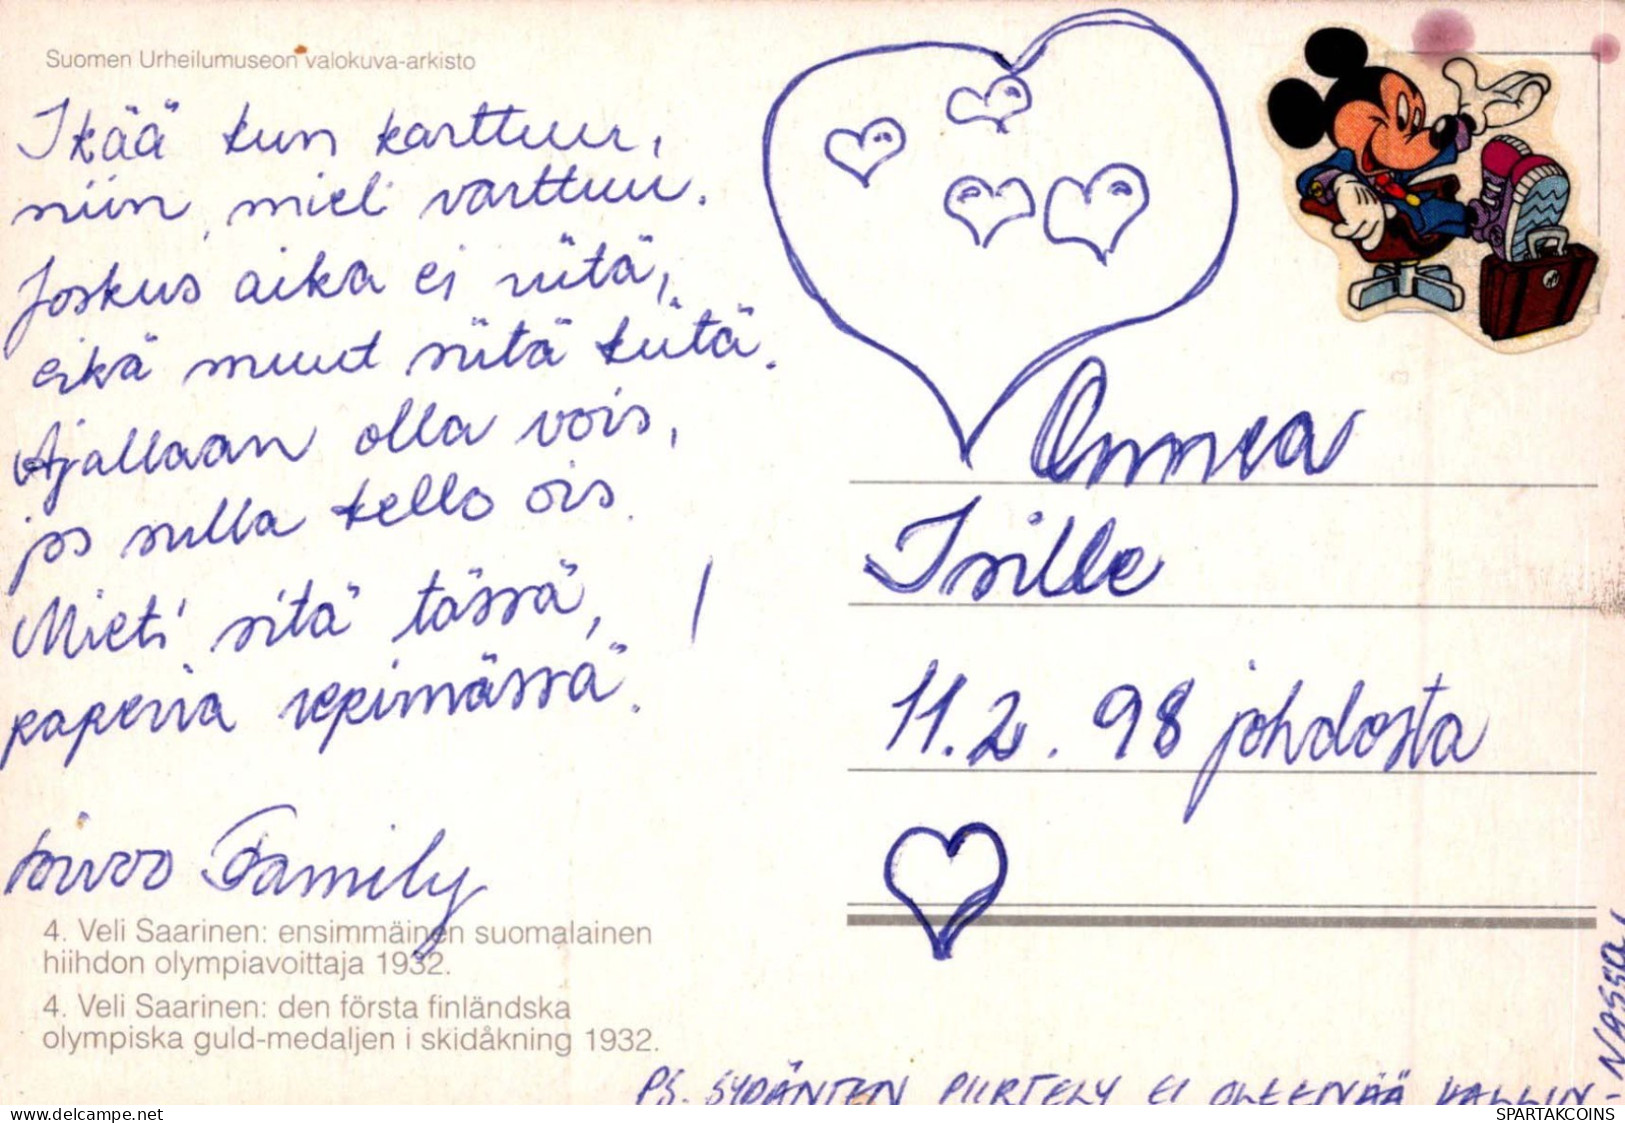 Suomen Urheilumuseon valokuva-arkisto
Ikää kun karttuu,
niin mieli varttuu.
Joskus aika ei riitä,
eikä muut siitä kiitä.
Ajallaan olla vois,
jos sulla kello ois.
Mieti sitä tässä,
paperia repimässä. !
toivoo Family
4. Veli Saarinen: ensimmäinen suomalainen
hiihdon olympiavoittaja 1932.
4. Veli Saarinen: den första finländska
olympiska guld-medaljen i skidåkning 1932.
Onnea
Isille
11.2.98 johdosta
PS. SYDÄNTEN PIIRTELY EI OLEENÄÄ HALLIN-
NASSA!
SPARTAKCOINS